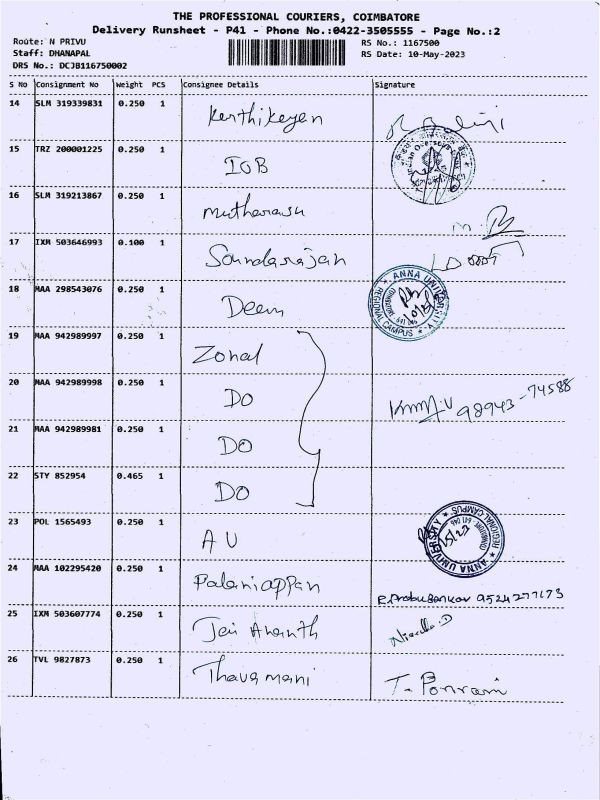 THE PROFESSIONAL COURIERS, COIMBATORE
Delivery Runsheet - P41 - Phone No.:0422-3505555 - Page No.:2
Route: N PRIVU
Staff: DHANAPAL
DRS No.: DCJB116750002
RS No.: 1167500
RS Date: 10-May-2023
S No Consignment No Weight PCS Consignee Details Signature
14 SLM 319339831 0.250 1 Karthikeyan
15 TRZ 200001225 0.250 1 IOB
16 SLM 319213867 0.250 1 Mutharasu
17 IXM 503646993 0.100 1 Soundarajan
18 MAA 298543076 0.250 1 Deen ANNA UNIVERSITY REGIONAL CAMPUS COIMBATORE 641 046
19 MAA 942989997 0.250 1 Zonal
20 MAA 942989998 0.250 1 DO 98943-74588
21 MAA 942989981 0.250 1 DO
22 STY 852954 0.465 1 DO
23 POL 1565493 0.250 1 AU ANNA UNIVERSITY REGIONAL CAMPUS COIMBATORE 641 046
24 MAA 102295420 0.250 1 Palaniappan
25 IXM 503607774 0.250 1 Jai Ananth
26 TVL 9827873 0.250 1 Thavamani T. Ponram